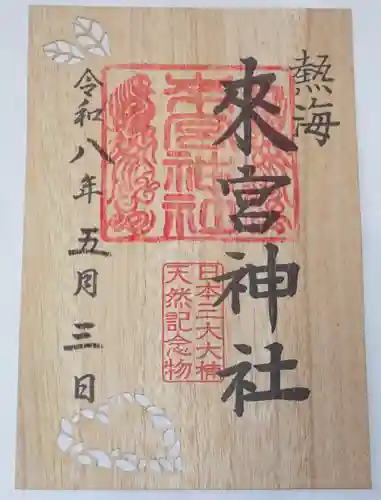 熱海
來宮神社
來宮神社
日本三大大楠
天然記念物
令和八年五月三日